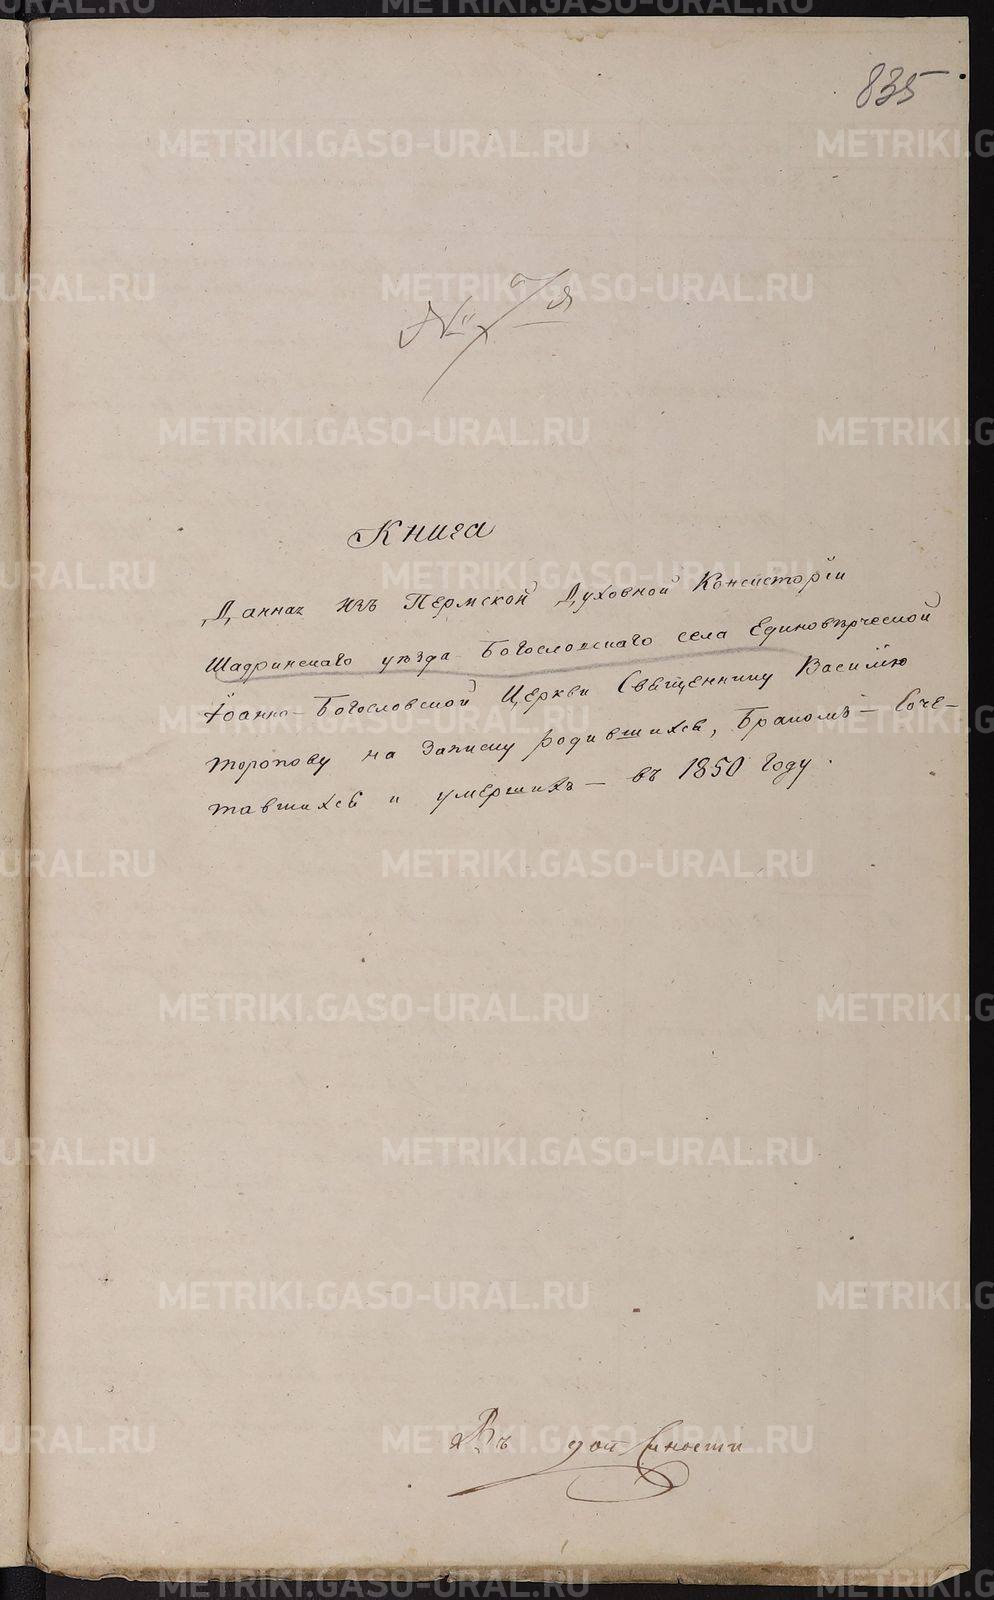 835
Книга
Данная изъ Пермской Духовной Консисторіи
Шадринскаго уѣзда Богословскаго села Единовѣрческой
Іоанно-Богословской Церкви Священнику Василію
Торопову на Записку родившихся, Бракомъ - Соче-
тавшихся и умершихъ - въ 1850 Году.
Въ
METRIKI.GASO-URAL.RU